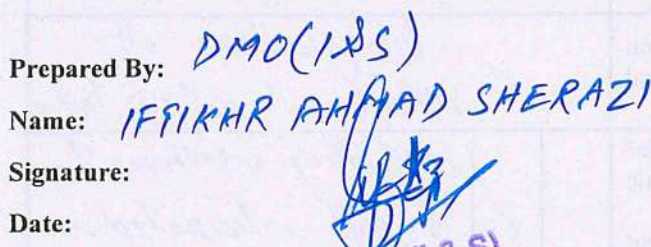 Prepared By: DMO(I&S)
Name: IFTIKHR AHMAD SHERAZI
Signature:
Date:
S)